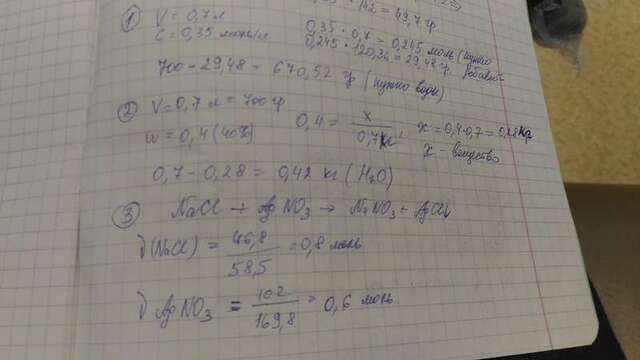 · 142 = 49,7 гр
① V = 0,7 л
C = 0,35 моль/л
0,35 · 0,7 = 0,245 моль (нужно
0,245 · 120,36 = 29,48 гр. добавить
700 - 29,48 = 670,52 гр (нужно воды)
② V = 0,7 л = 700 гр
w = 0,4 (40%)
0,4 = x / 0,7кг, x = 0,4·0,7 = 0,28 кг
x - вещество
0,7 - 0,28 = 0,42 кг (H₂O)
③ NaCl + AgNO₃ → NaNO₃ + AgCl↓
ν(NaCl) = 46,8 / 58,5 = 0,8 моль
ν AgNO₃ = 102 / 169,8 = 0,6 моль